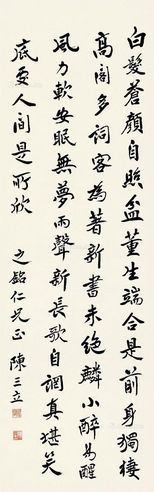 白髮蒼顏自照盆董生端合是前身獨棲
高閣多詞客為著新書未絕麟小醉易醒
風力軟安眠無夢雨聲新長歌自調真堪笑
底處人間是所欣 之銘仁兄正 陳三立